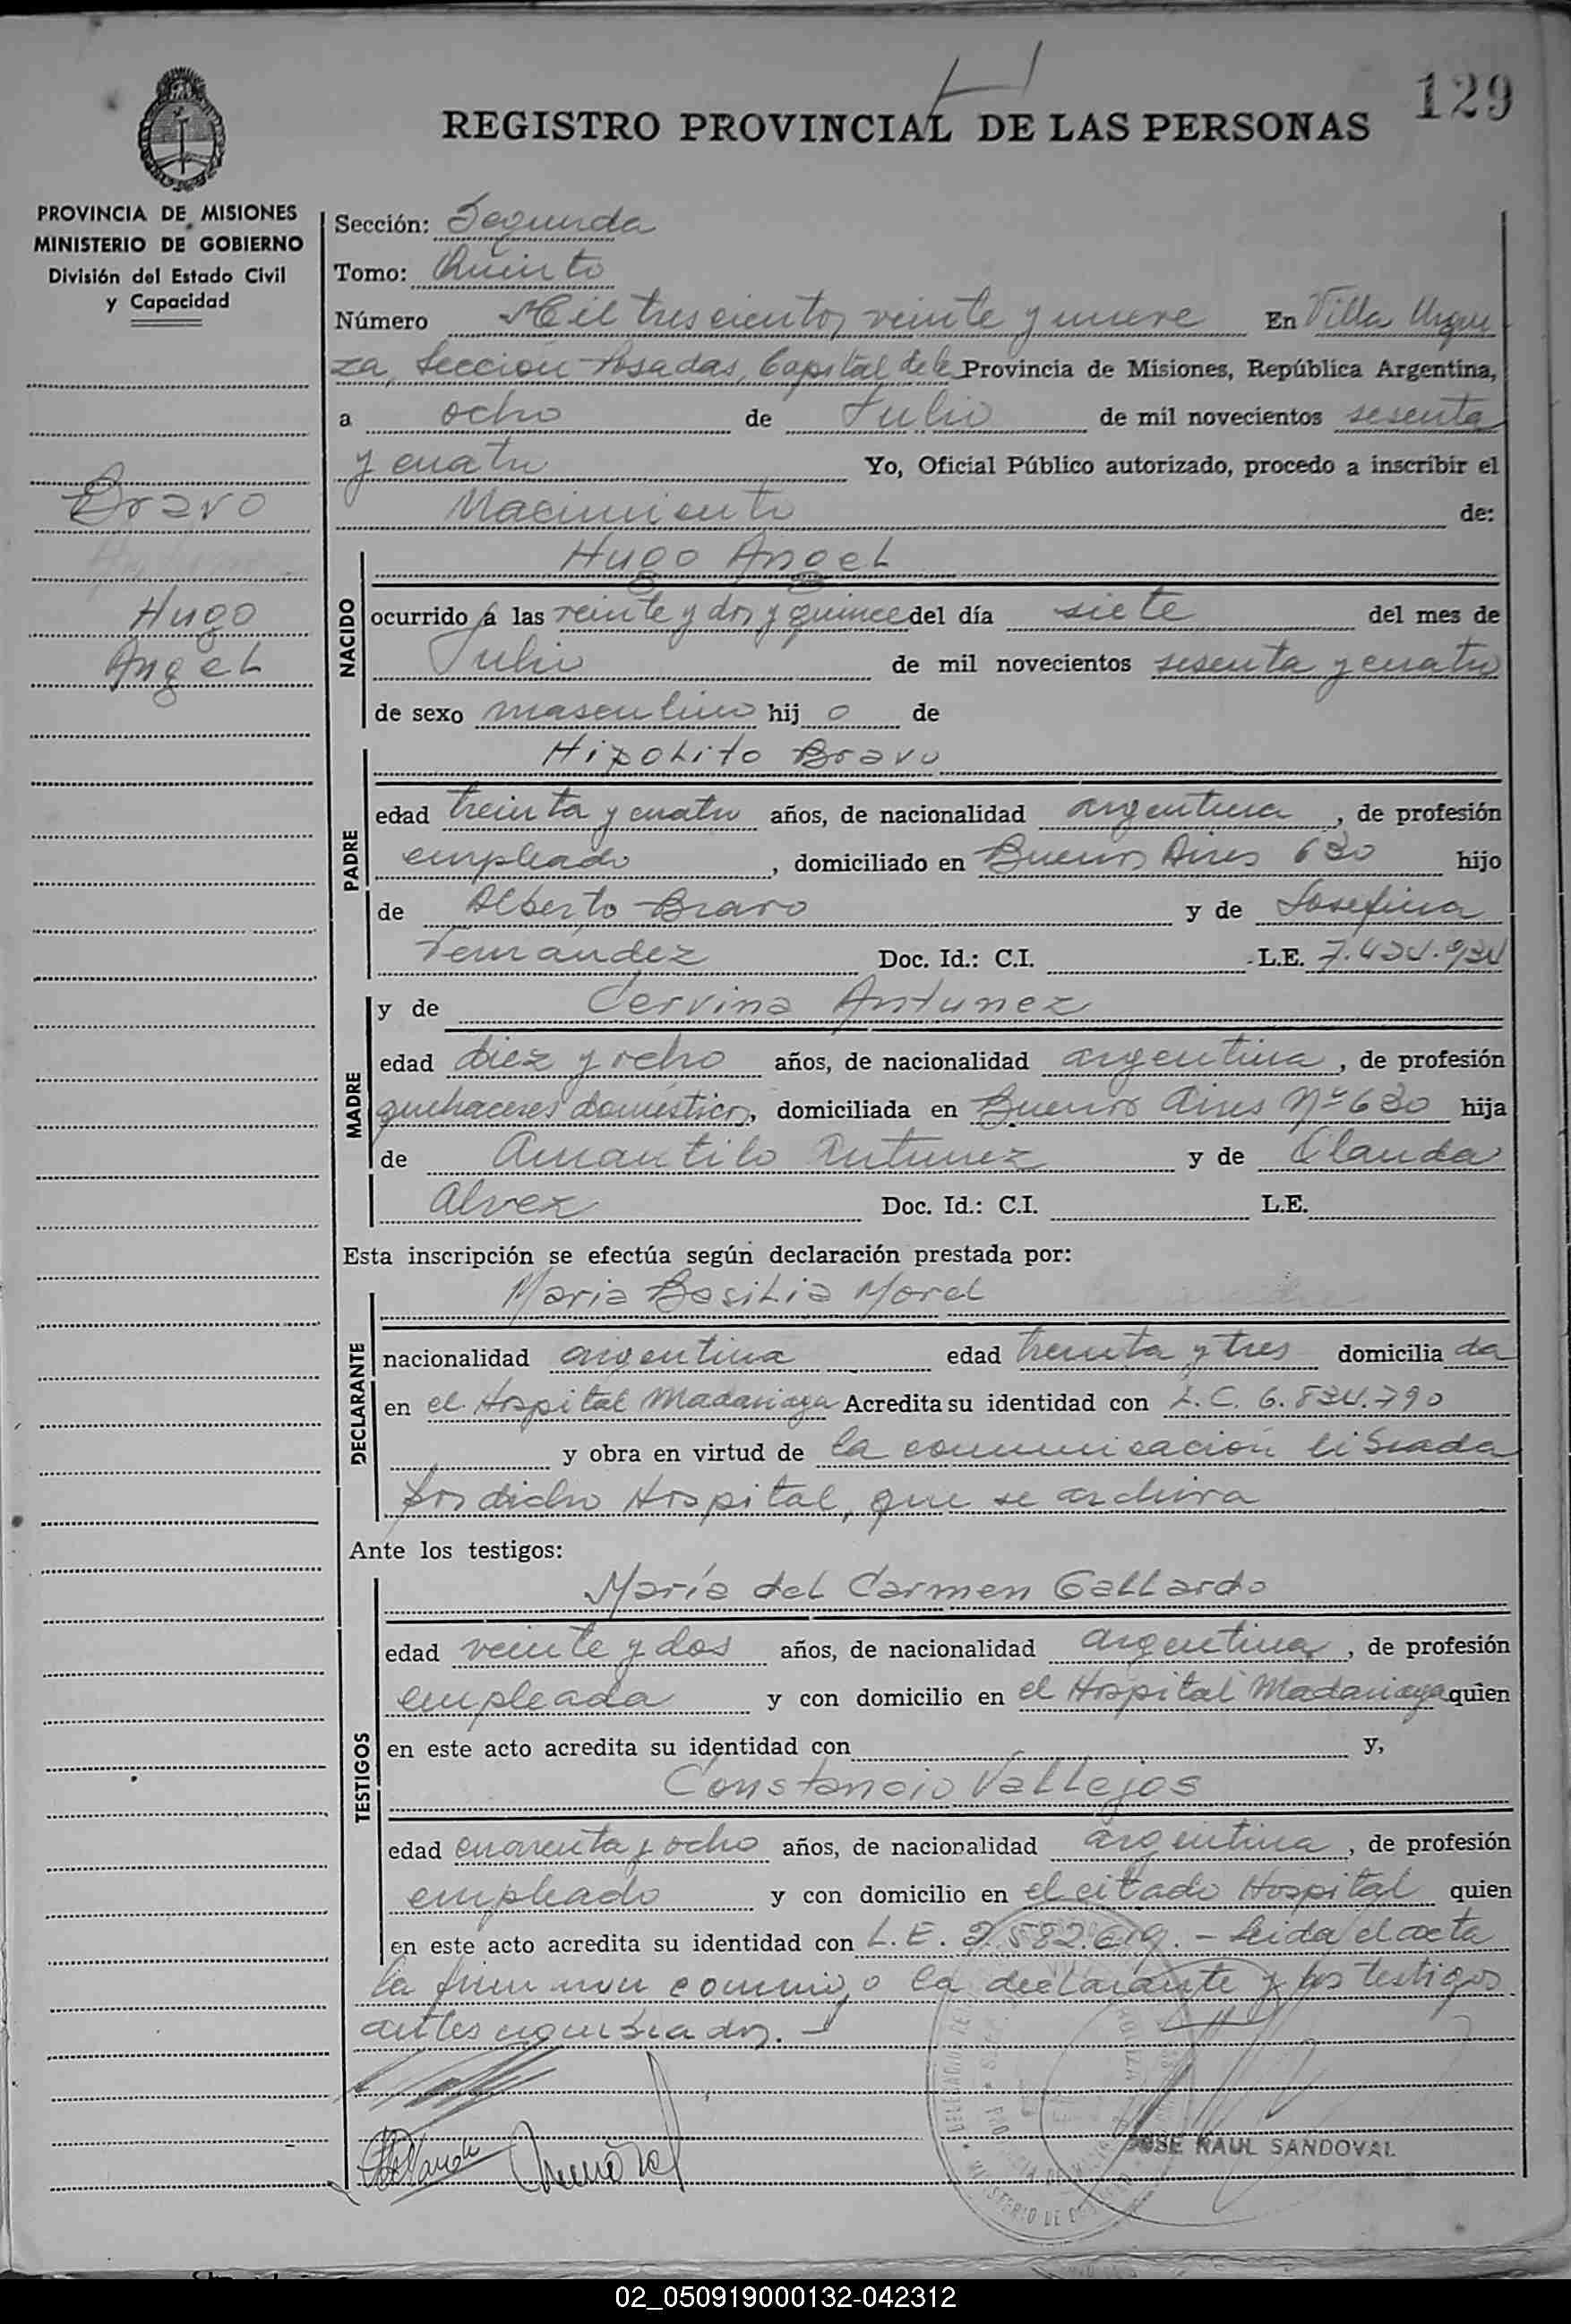 129
REGISTRO PROVINCIAL DE LAS PERSONAS
PROVINCIA DE MISIONES
MINISTERIO DE GOBIERNO
División del Estado Civil
y Capacidad
Bravo
Hugo
Angel
Sección: Segunda
Tomo: Quinto
Número Mil trescientos veinte y nueve En Villa Urqui
za, Sección Posadas, Capital de la Provincia de Misiones, República Argentina,
a ocho de Julio de mil novecientos sesenta
y cuatro Yo, Oficial Público autorizado, procedo a inscribir el
Nacimiento de:
NACIDO
Hugo Angel
ocurrido a las veinte y dos y quince del día siete del mes de
Julio de mil novecientos sesenta y cuatro
de sexo masculino hij o de
PADRE
Hipolito Bravo
edad treinta y cuatro años, de nacionalidad argentina, de profesión
empleado, domiciliado en Buenos Aires 630 hijo
de Alberto Bravo y de Josefina
Fernández Doc. Id.: C.I. L.E.
MADRE
y de Cervina Antunez
edad diez y ocho años, de nacionalidad argentina, de profesión
quehaceres domésticos, domiciliada en Buenos Aires Nº 630 hija
de Amantilo Antunez y de Clauda
Alvez Doc. Id.: C.I. L.E.
Esta inscripción se efectúa según declaración prestada por:
DECLARANTE
Maria Basilia Morel
nacionalidad argentina edad treinta y tres domicilia da
en el Hospital Madariaga Acredita su identidad con L.C. 6.834.790
y obra en virtud de la comunicación librada
por dicho Hospital, que se archiva
Ante los testigos:
TESTIGOS
María del Carmen Gallardo
edad veinte y dos años, de nacionalidad argentina, de profesión
empleada y con domicilio en el Hospital Madariaga quien
en este acto acredita su identidad con y,
Constancio Vallejos
edad cuarenta y ocho años, de nacionalidad argentina, de profesión
empleado y con domicilio en el citado Hospital quien
en este acto acredita su identidad con L.E. 2.582.619. - Leida el acta
la firman conmigo la declarante y los testigos
antes nombrados. -
JOSE RAUL SANDOVAL
02_050919000132-042312